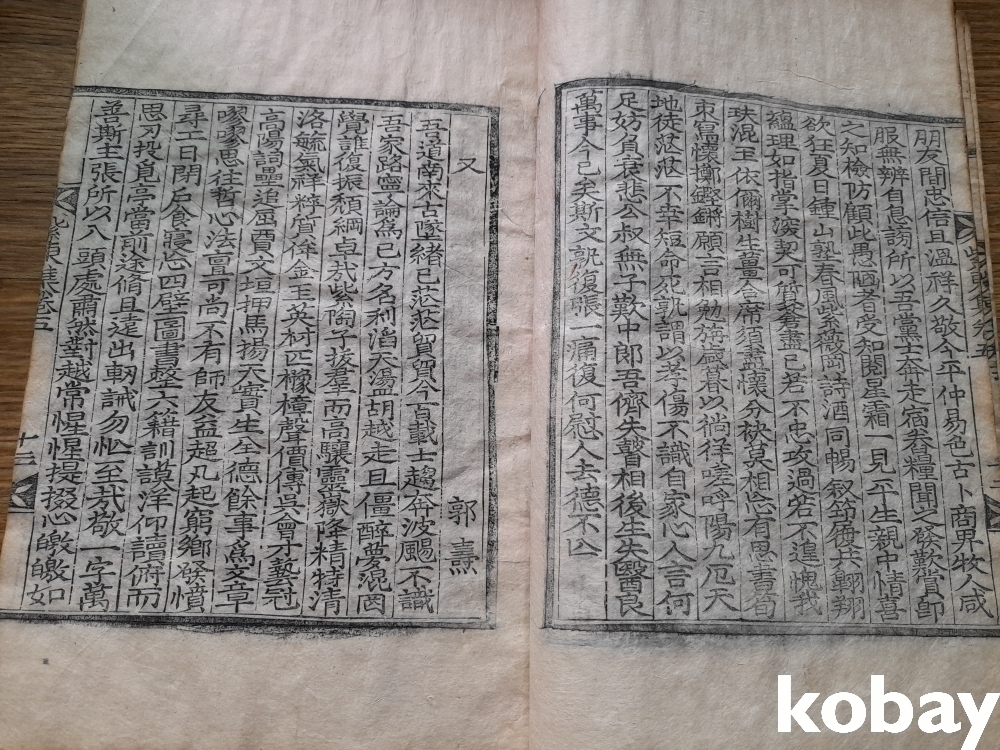 朋友間忠信且溫祥久敬今平仲易色古卜商男牧人咸
服無辨自息謗所以吾黨士奔走宿舂糧聞之發歎賞卽
之知檢防顧此愚陋者受知閱星霜一見平生親中情喜
欲狂夏日鍾山塾春風紫薇岡詩酒同暢叙節履共翺翔
蘊理如指掌深契可質蒼盡已若不忠攻過若不遑愧我
玞混玉依爾樹生薑合席須盡懷分袂莫相忘有思書苟
來昌懷擲鏗鏘願言相勉旃歲暮以徜徉嗟呼陽九厄天
地徒茫茫不幸短命死孰謂以孝傷不識自家心人言何
足妨負衰悲令叔無子歎中郎吾儕失聲相後生失醫良
萬事今已矣斯文孰復張一痛復何慰人去德不亾
又 郭燾
吾道南來古墜緒已茫茫貿貿今百載士趨奔波颺不識
吾家路寧論爲已方名利滔天盪胡越走且僵醉夢況罔
覺誰復振頹綱卓哉紫陶子拔羣而高驤靈嶽降精特淸
洛毓氣祥粹質侔金玉英材匹櫲樟聲價傳吳會才藝冠
高陽詞壘追屈賈文垣押馬揚天實生全德餘事爲文章
嘐嘐思往哲心法亶可尙不有師友益超凡起窮鄕發憤
尋工日閉戶食寢忘四壁圖書整六籍訓謨洋仰讀俯而
思刃投見亭當前途脩且遠出軔誡勿忙至哉敬一字萬
善斯主張所以入頭處肅然對越常惺惺提掇心皦皦如
卷五 十二
kobay